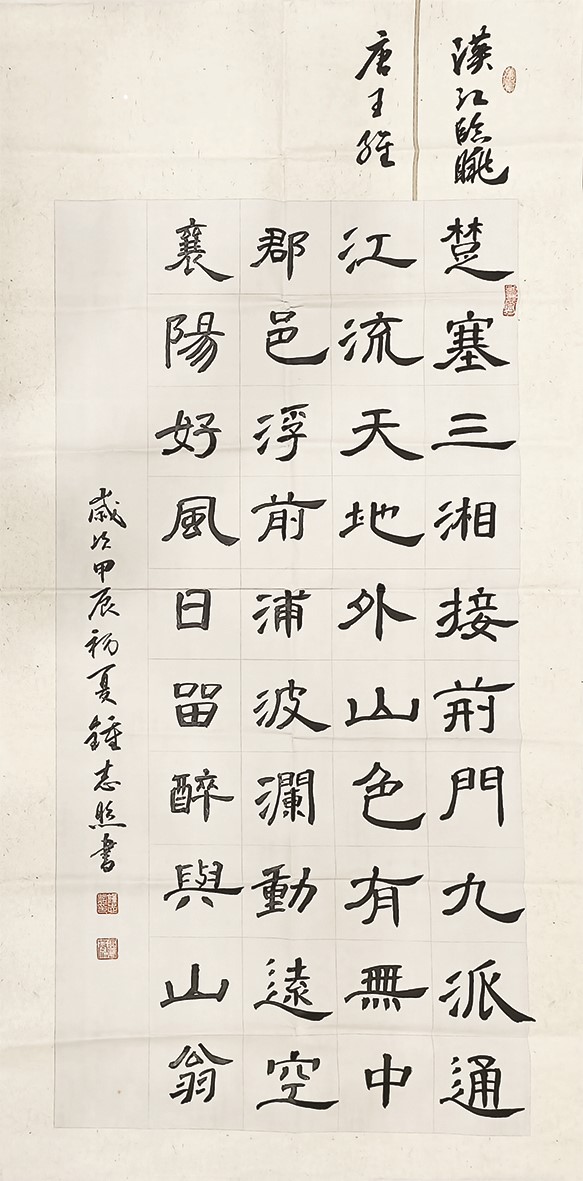 漢江臨眺
唐王維
楚塞三湘接荊門九派通
江流天地外山色有無中
郡邑浮前浦波瀾動遠空
襄陽好風日留醉與山翁
歲次甲辰初夏鍾志熙書